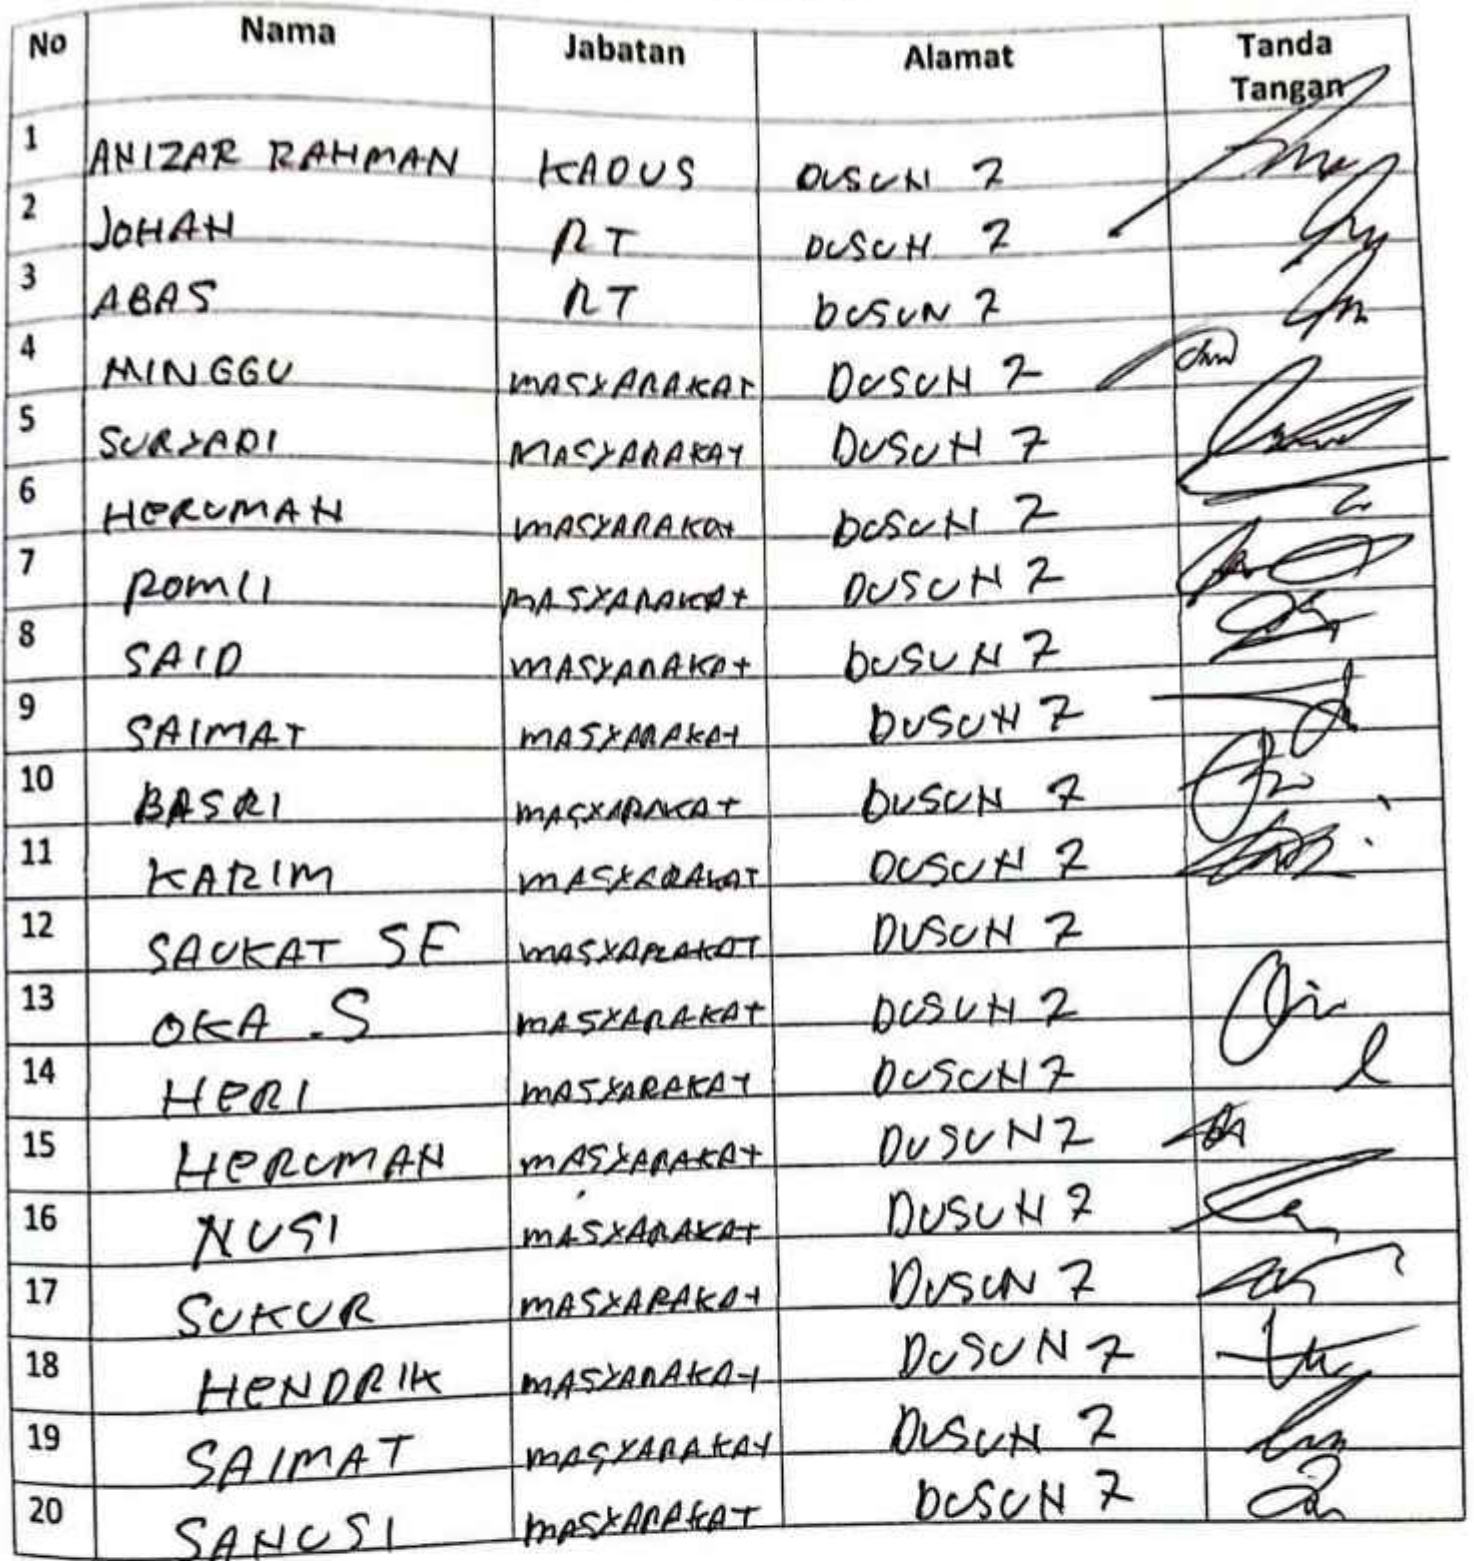 No Nama Jabatan Alamat Tanda Tangan
1 ANIZAR RAHMAN KADUS DUSUN 7
2 JOHAN RT DUSUN 7
3 ABAS RT DUSUN 7
4 MINGGU MASYARAKAT DUSUN 7
5 SURYADI MASYARAKAT DUSUN 7
6 HERUMAN MASYARAKAT DUSUN 7
7 ROMLI MASYARAKAT DUSUN 7
8 SAID MASYARAKAT DUSUN 7
9 SAIMAT MASYARAKAT DUSUN 7
10 BASRI MASYARAKAT DUSUN 7
11 KARIM MASYARAKAT DUSUN 7
12 SAUKAT SE MASYARAKAT DUSUN 7
13 OKA .S MASYARAKAT DUSUN 7
14 HERI MASYARAKAT DUSUN 7
15 HERUMAN MASYARAKAT DUSUN 7
16 NUSI MASYARAKAT DUSUN 7
17 SUKUR MASYARAKAT DUSUN 7
18 HENDRIK MASYARAKAT DUSUN 7
19 SAIMAT MASYARAKAT DUSUN 7
20 SANUSI MASYARAKAT DUSUN 7